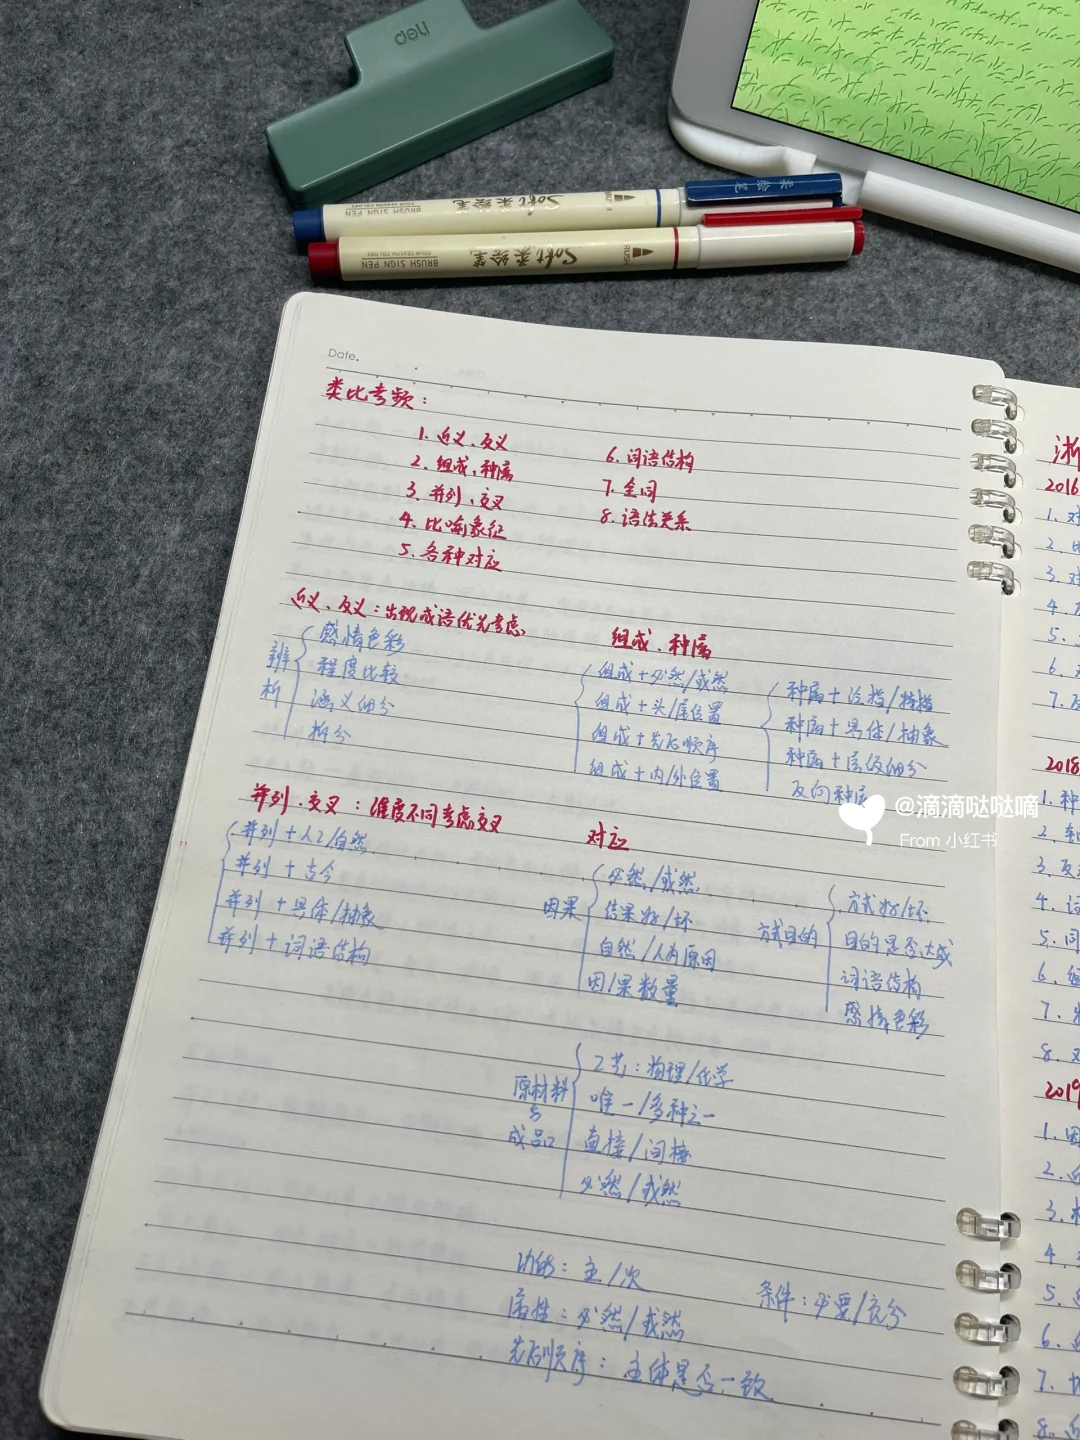 deli
柔绘笔
BRUSH SIGN PEN
FOUR SEASON COLORS
Soft 柔绘笔
BRUSH SIGN PEN
FOUR SEASON COLORS
Soft 柔绘笔
Date.
类比考频：
1. 近义、反义
2. 组成、种属
3. 并列、交叉
4. 比喻象征
5. 各种对应
6. 词语结构
7. 全同
8. 语法关系
近义、反义：出现成语优先考虑
辨析
感情色彩
程度比较
涵义细分
拆分
组成、种属
组成+必然/或然
组成+头/尾位置
组成+先后顺序
组成+内/外位置
种属+具体/抽象
种属+层级细分
反向种属
并列、交叉：难度不同考虑交叉
并列+人工/自然
并列+古今
并列+具体/抽象
并列+词语结构
对应
因果
必然/或然
结果好/坏
自然/人为原因
因/果数量
方式目的
方式好/坏
目的是否达成
词语结构
感情色彩
原材料
与
成品
工艺：物理/化学
唯一/多种之一
直接/间接
必然/或然
功能：主/次
属性：必然/或然
先后顺序：主体是否一致
条件：必要/充分
浙
2016
1. 对
2.
3. 对
4.
5.
6.
7. 反
2018
1. 种
2.
3. 反
4. 词
5. 同
6.
7.
8. 对
2019
1. 因
2. 近
3.
4.
5.
6.
7.
8. 近
@滴滴哒哒嘀
From 小红书